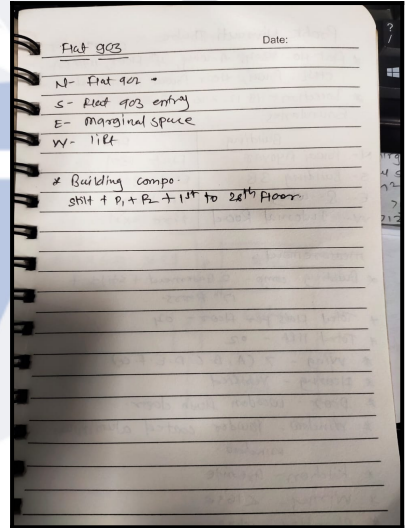 Date:
Flat 903
N- Flat 902
S- Flat 903 entry
E- Marginal space
W- lift
* Building compo.
stilt + P1 + P2 + 1st to 28th Floor.